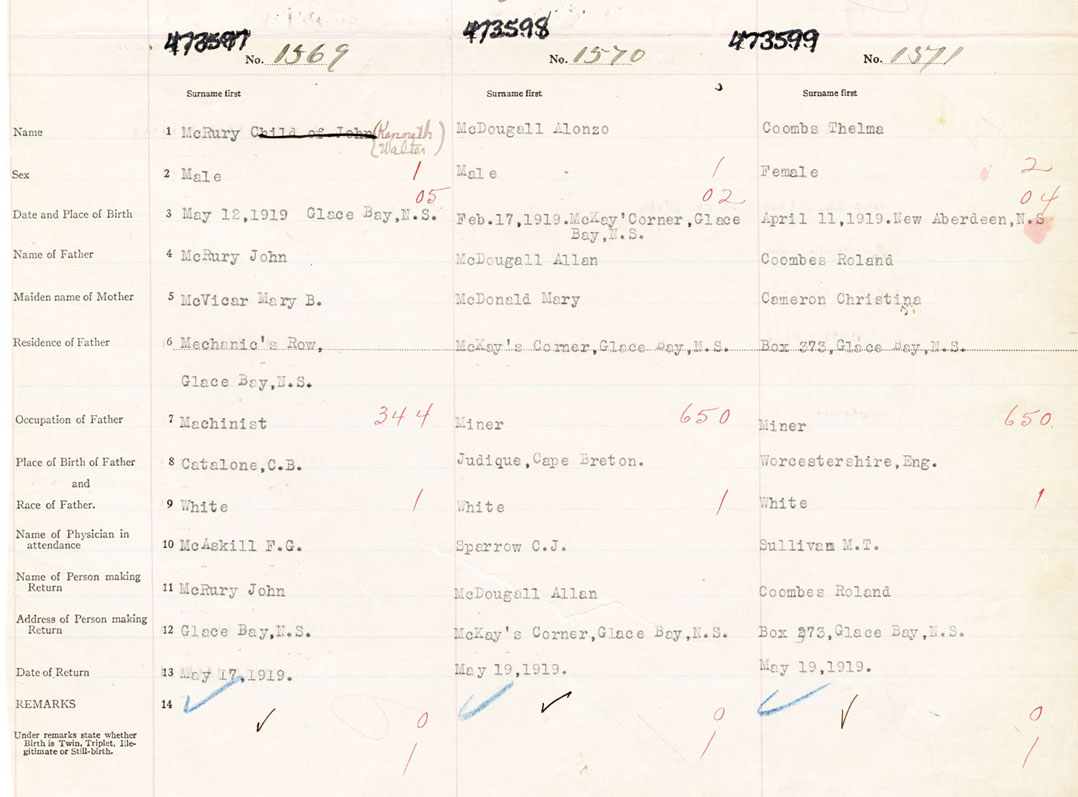 473597 473598 473599
No. 1369 No. 1370 No. 1371
Surname first Surname first Surname first
Name 1 McRury Child of John (Kenneth Walter) McDougall Alonzo Coombs Thelma
Sex 2 Male 1 Male 1 Female 2
05 02 04
Date and Place of Birth 3 May 12,1919 Glace Bay,N.S. Feb.17,1919.McKay'Corner,Glace April 11,1919.New Aberdeen,N.S
Bay,N.S.
Name of Father 4 McRury John McDougall Allan Coombes Roland
Maiden name of Mother 5 McVicar Mary B. McDonald Mary Cameron Christina
Residence of Father 6 Mechanic's Row, McKay's Corner,Glace Bay,N.S. Box 373,Glace Bay,N.S.
Glace Bay,N.S.
Occupation of Father 7 Machinist 344 Miner 650 Miner 650.
Place of Birth of Father 8 Catalone,C.B. Judique,Cape Breton. Worcestershire,Eng.
and
Race of Father. 9 White 1 White 1 White 1
Name of Physician in
attendance 10 McAskill F.G. Sparrow C.J. Sullivan M.T.
Name of Person making
Return 11 McRury John McDougall Allan Coombes Roland
Address of Person making
Return 12 Glace Bay,N.S. McKay's Corner,Glace Bay,N.S. Box 273,Glace Bay,N.S.
Date of Return 13 May 17,1919. May 19,1919. May 19,1919.
REMARKS 14
0 0 0
Under remarks state whether
Birth is Twin, Triplet, Ille-
gitimate or Still-birth.
1 1 1